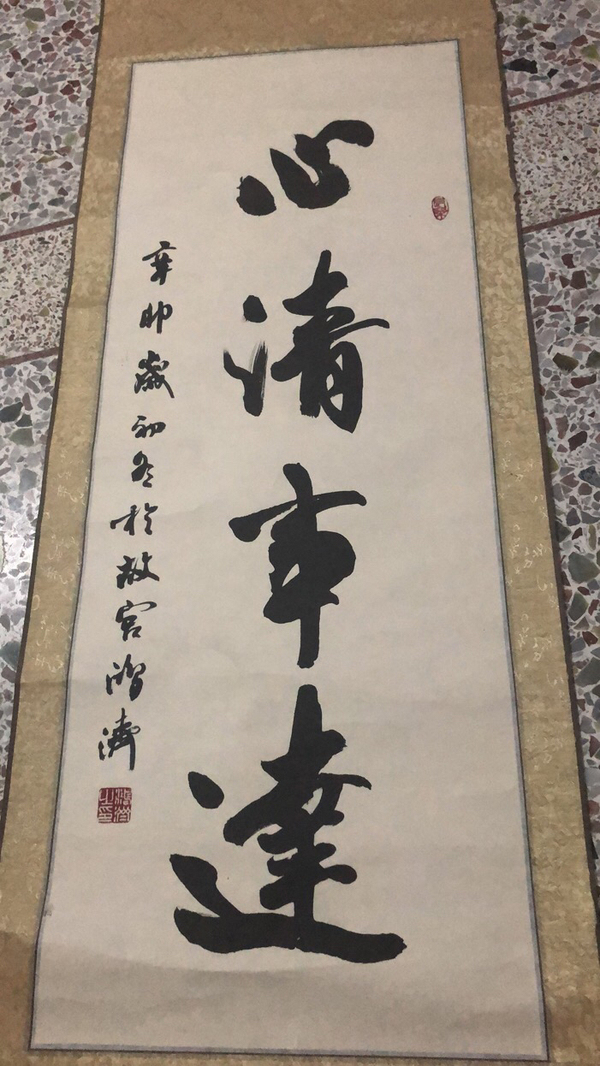 心清事達
辛卯歲初冬於故宮鴻濤